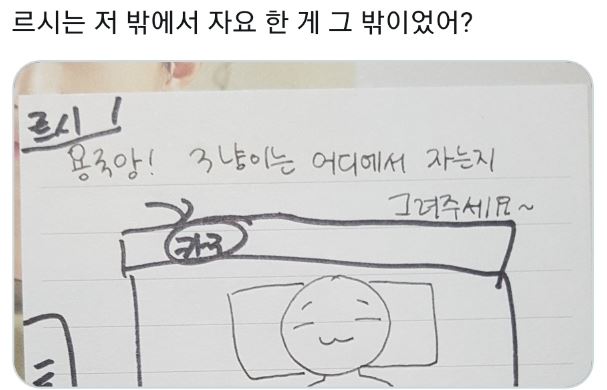 르시는 저 밖에서 자요 한 게 그 밖이었어?
르시!
용국아! 그냥이는 어디에서 자는지
그려주세요~